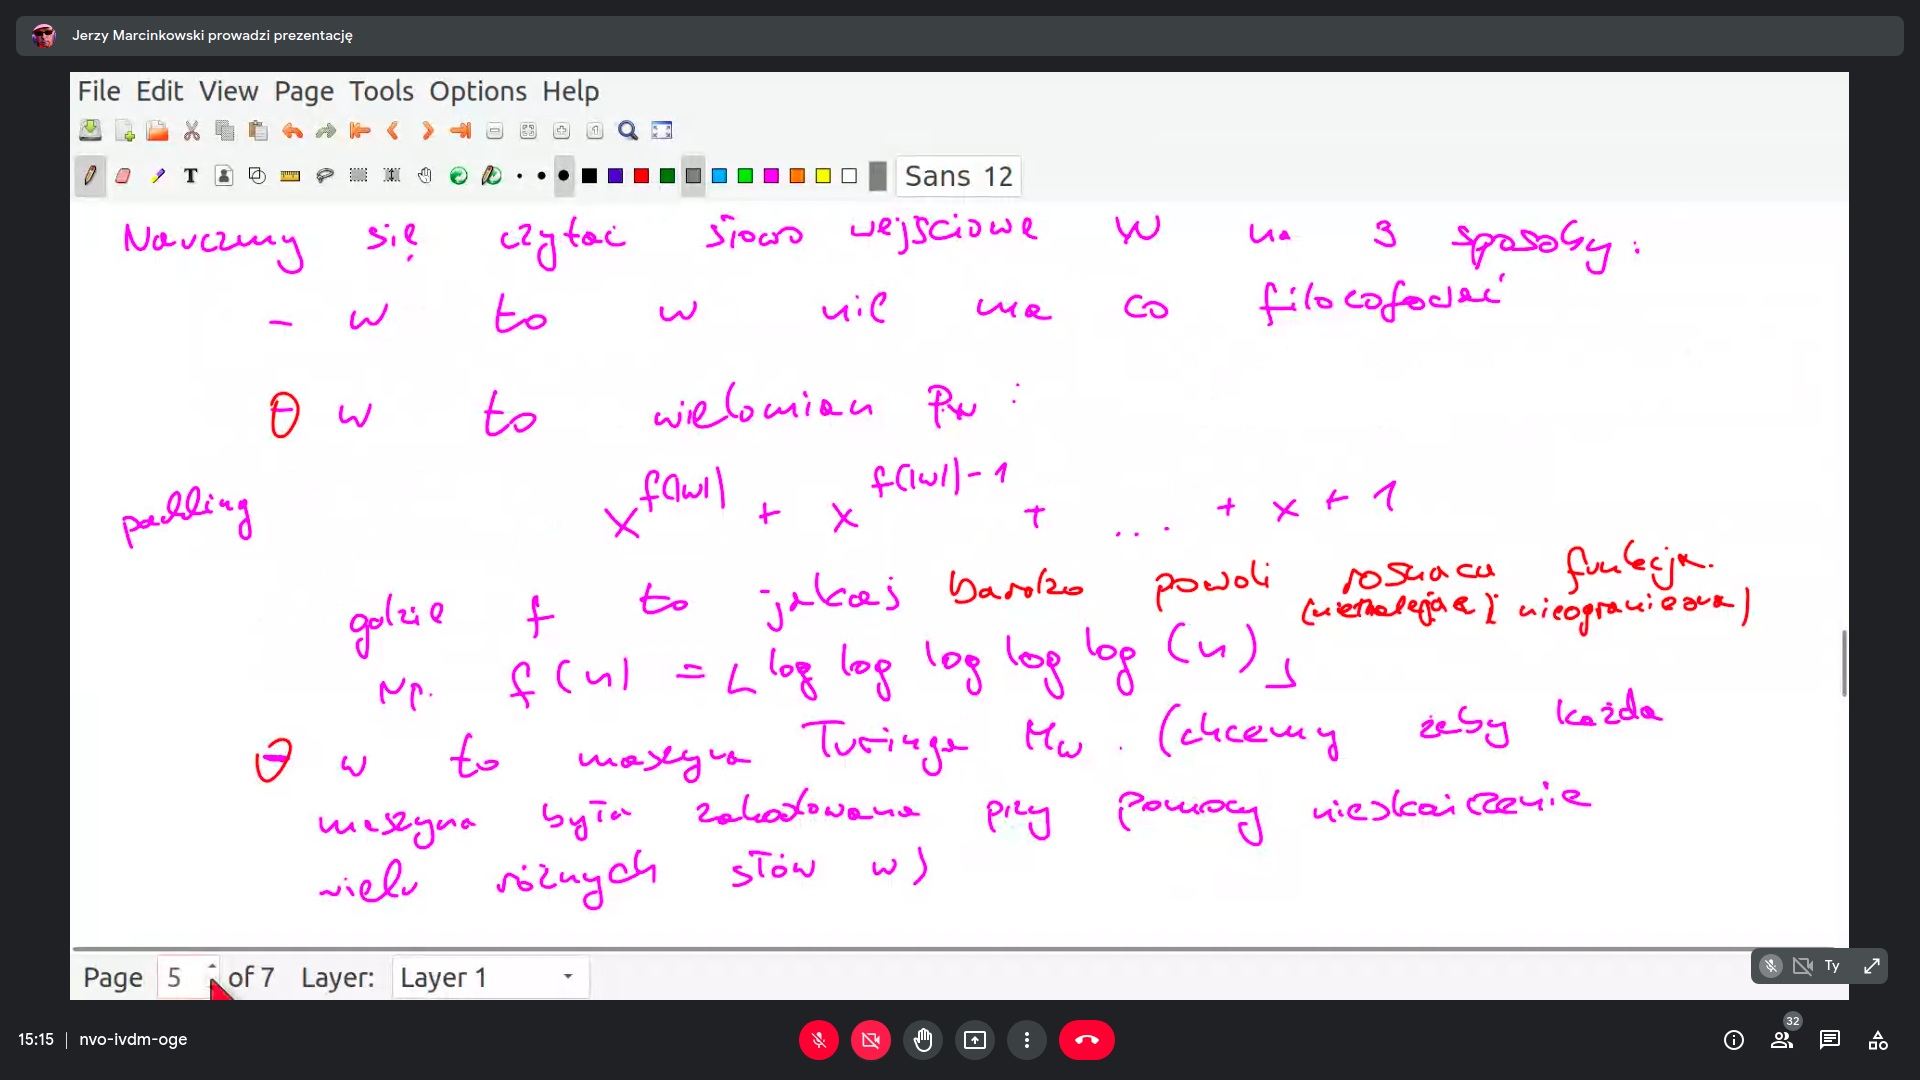 Jerzy Marcinkowski prowadzi prezentację
File Edit View Page Tools Options Help
T Sans 12
Nauczmy się czytać słowo wejściowe W na 3 sposoby:
- w to w nie ma co filozofować
- w to wielomian Pw:
padding
x^f(|w|) + x^f(|w|)-1 + ... + x + 1
gdzie f to jakaś bardzo powoli rosnąca funkcja.
(niemalejąca i nieograniczona)
Np. f(n) = ⌊log log log log log (n)⌋
- w to maszyna Turinga Mw. (chcemy żeby każda
maszyna była zakodowana przy pomocy nieskończenie
wielu różnych słów w)
Page 5 of 7 Layer: Layer 1
Ty
15:15 | nvo-ivdm-oge
32